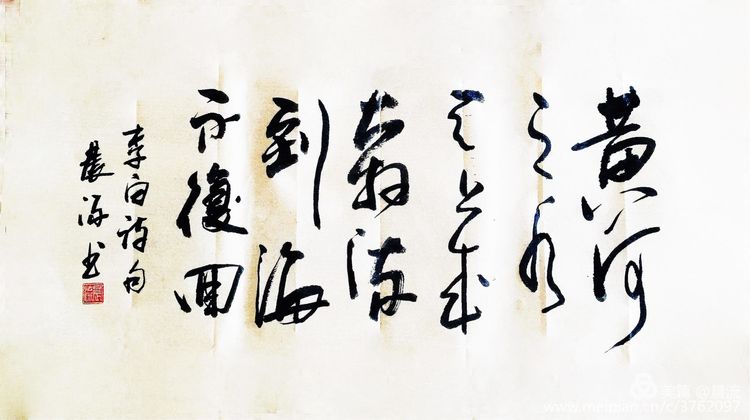 黄河
之水
天上来
奔流
到海
不復回
李白诗句
晨海书
美篇
www.meipian.cn/c/3762097